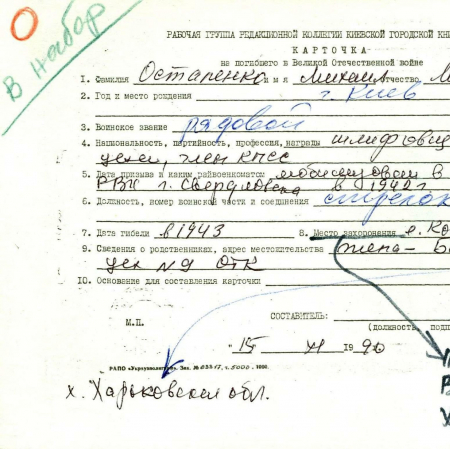 О
В набор
РАБОЧАЯ ГРУППА РЕДАКЦИОННОЙ КОЛЛЕГИИ КИЕВСКОЙ ГОРОДСКОЙ КНИ
КАРТОЧКА
на погибшего в Великой Отечественной войне
1. Фамилия Остапенко имя Михаил отчество М
2. Год и место рождения г. Киев
3. Воинское звание рядовой
4. Национальность, партийность, профессия, награды шлифовщ
член КПСС
5. Дата призыва и каким райвоенкоматом мобилизован в
РВК г. Свердловска в 1942г
6. Должность, номер воинской части и соединения стрелок
7. Дата гибели в 1943 8. Место захоронения
9. Сведения о родственниках, адрес местожительства жена - Б
цех №9 ОТК
10. Основание для составления карточки
СОСТАВИТЕЛЬ:
М.П. (должность, подп
15 XI 1990
РАПО «Укрвузполиграф». Зак. т. 5000 . 1990.
х. Харьковской обл.